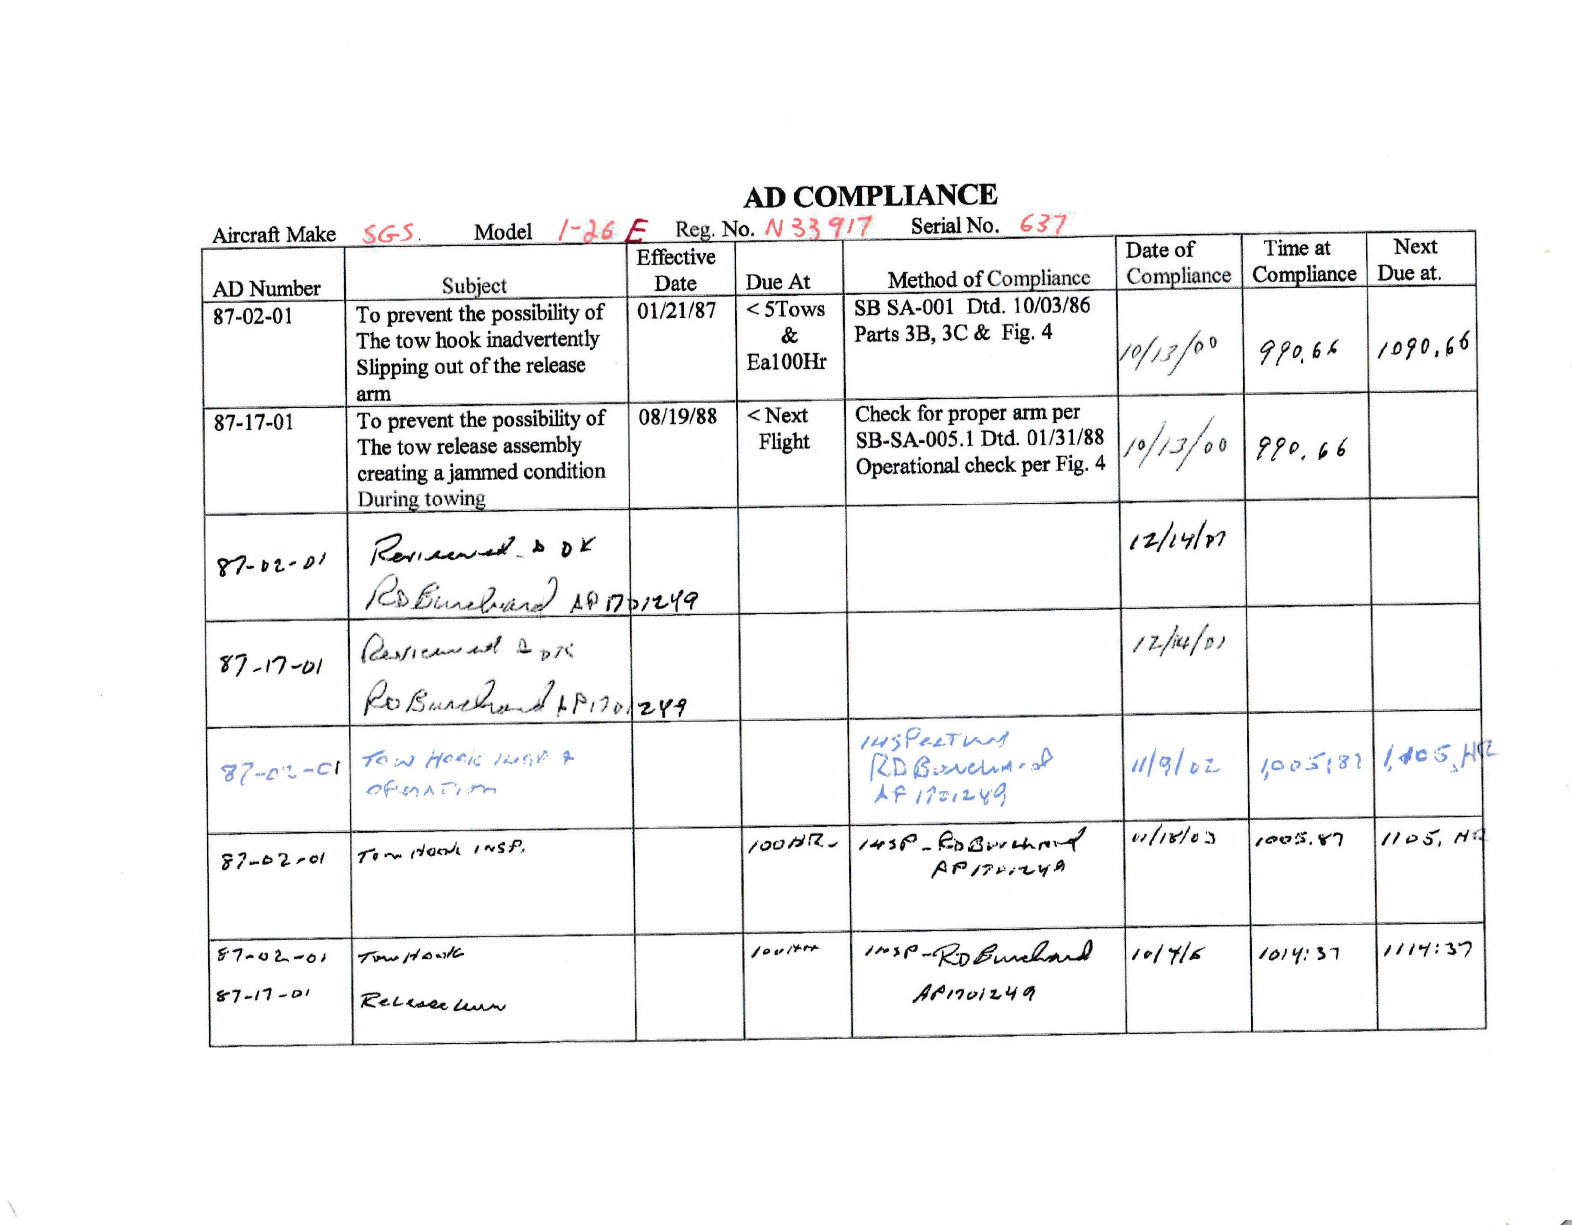 AD COMPLIANCE
Aircraft Make SGS. Model 1-26 E Reg. No. N33917 Serial No. 637
AD Number Subject Effective Date Due At Method of Compliance Date of Compliance Time at Compliance Next Due at.
87-02-01 To prevent the possibility of 01/21/87 < 5Tows SB SA-001 Dtd. 10/03/86
The tow hook inadvertently & Parts 3B, 3C & Fig. 4 10/13/00 990.66 1090.66
Slipping out of the release Ea100Hr
arm
87-17-01 To prevent the possibility of 08/19/88 < Next Check for proper arm per
The tow release assembly Flight SB-SA-005.1 Dtd. 01/31/88 10/13/00 990.66
creating a jammed condition Operational check per Fig. 4
During towing
87-02-01 Reviewed & OK 12/14/01
RD Burchard AP 1701249
87-17-01 Reviewed & OK 12/14/01
RD Burchard AP1701249
87-02-01 Tow Hook INSP & INSPECTION 11/9/02 1,005:87 1,105, HR
OPERATION RD Burchard
AP 1701249
87-02-01 Tow Hook INSP. 100HR- INSP - RD Burchard 11/18/03 1005.87 1105, HR
AP 1701249
87-02-01 Tow Hook 100HR INSP - RD Burchard 10/7/6 1014:37 1114:37
87-17-01 Release AP1701249